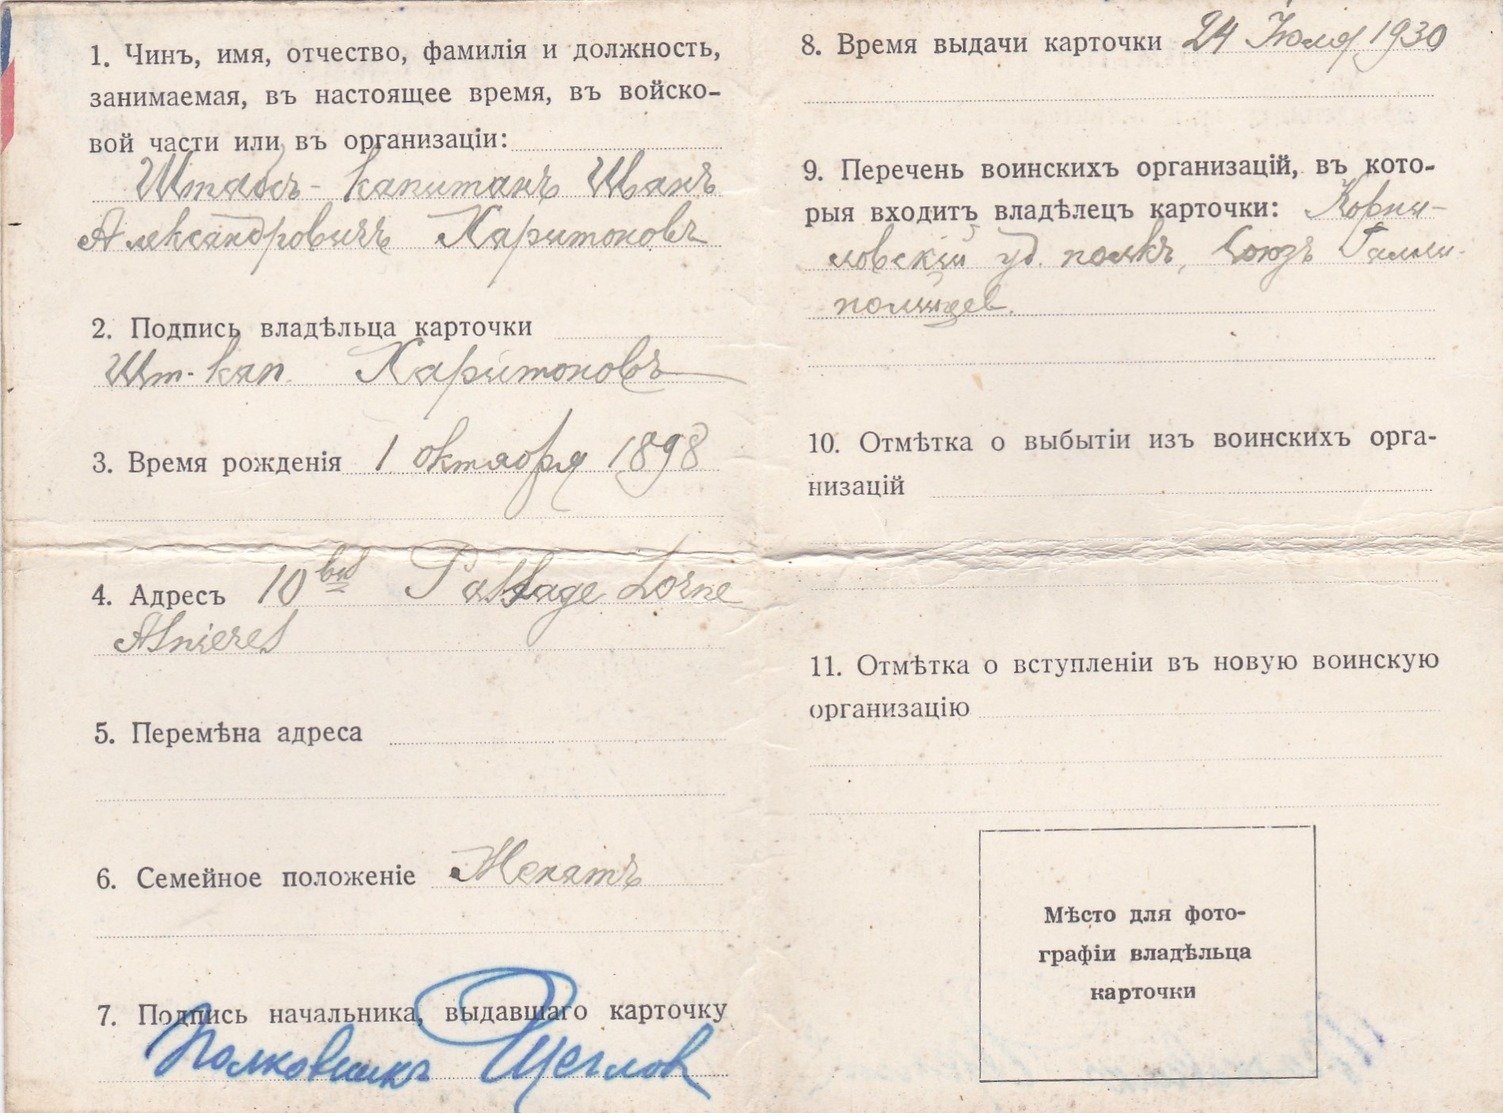 1. Чинъ, имя, отчество, фамилія и должность,
занимаемая, въ настоящее время, въ войско-
вой части или въ организаціи:
Штабсъ-капитанъ Иванъ
Александровичъ Харитоновъ
2. Подпись владѣльца карточки
Шт-кап. Харитоновъ
3. Время рожденія 1 октября 1898
4. Адресъ 10 bis Passage Lorne
Asnieres
5. Перемѣна адреса
6. Семейное положеніе Женатъ
7. Подпись начальника, выдавшаго карточку
Полковникъ Щеглов
8. Время выдачи карточки 24 Июля 1930
9. Перечень воинскихъ организацій, въ кото-
рыя входитъ владѣлецъ карточки: Корни-
ловскій уд. полкъ, Союзъ Галли-
полійцев.
10. Отмѣтка о выбытіи изъ воинскихъ орга-
низацій
11. Отмѣтка о вступленіи въ новую воинскую
организацію
Мѣсто для фото-
графіи владѣльца
карточки